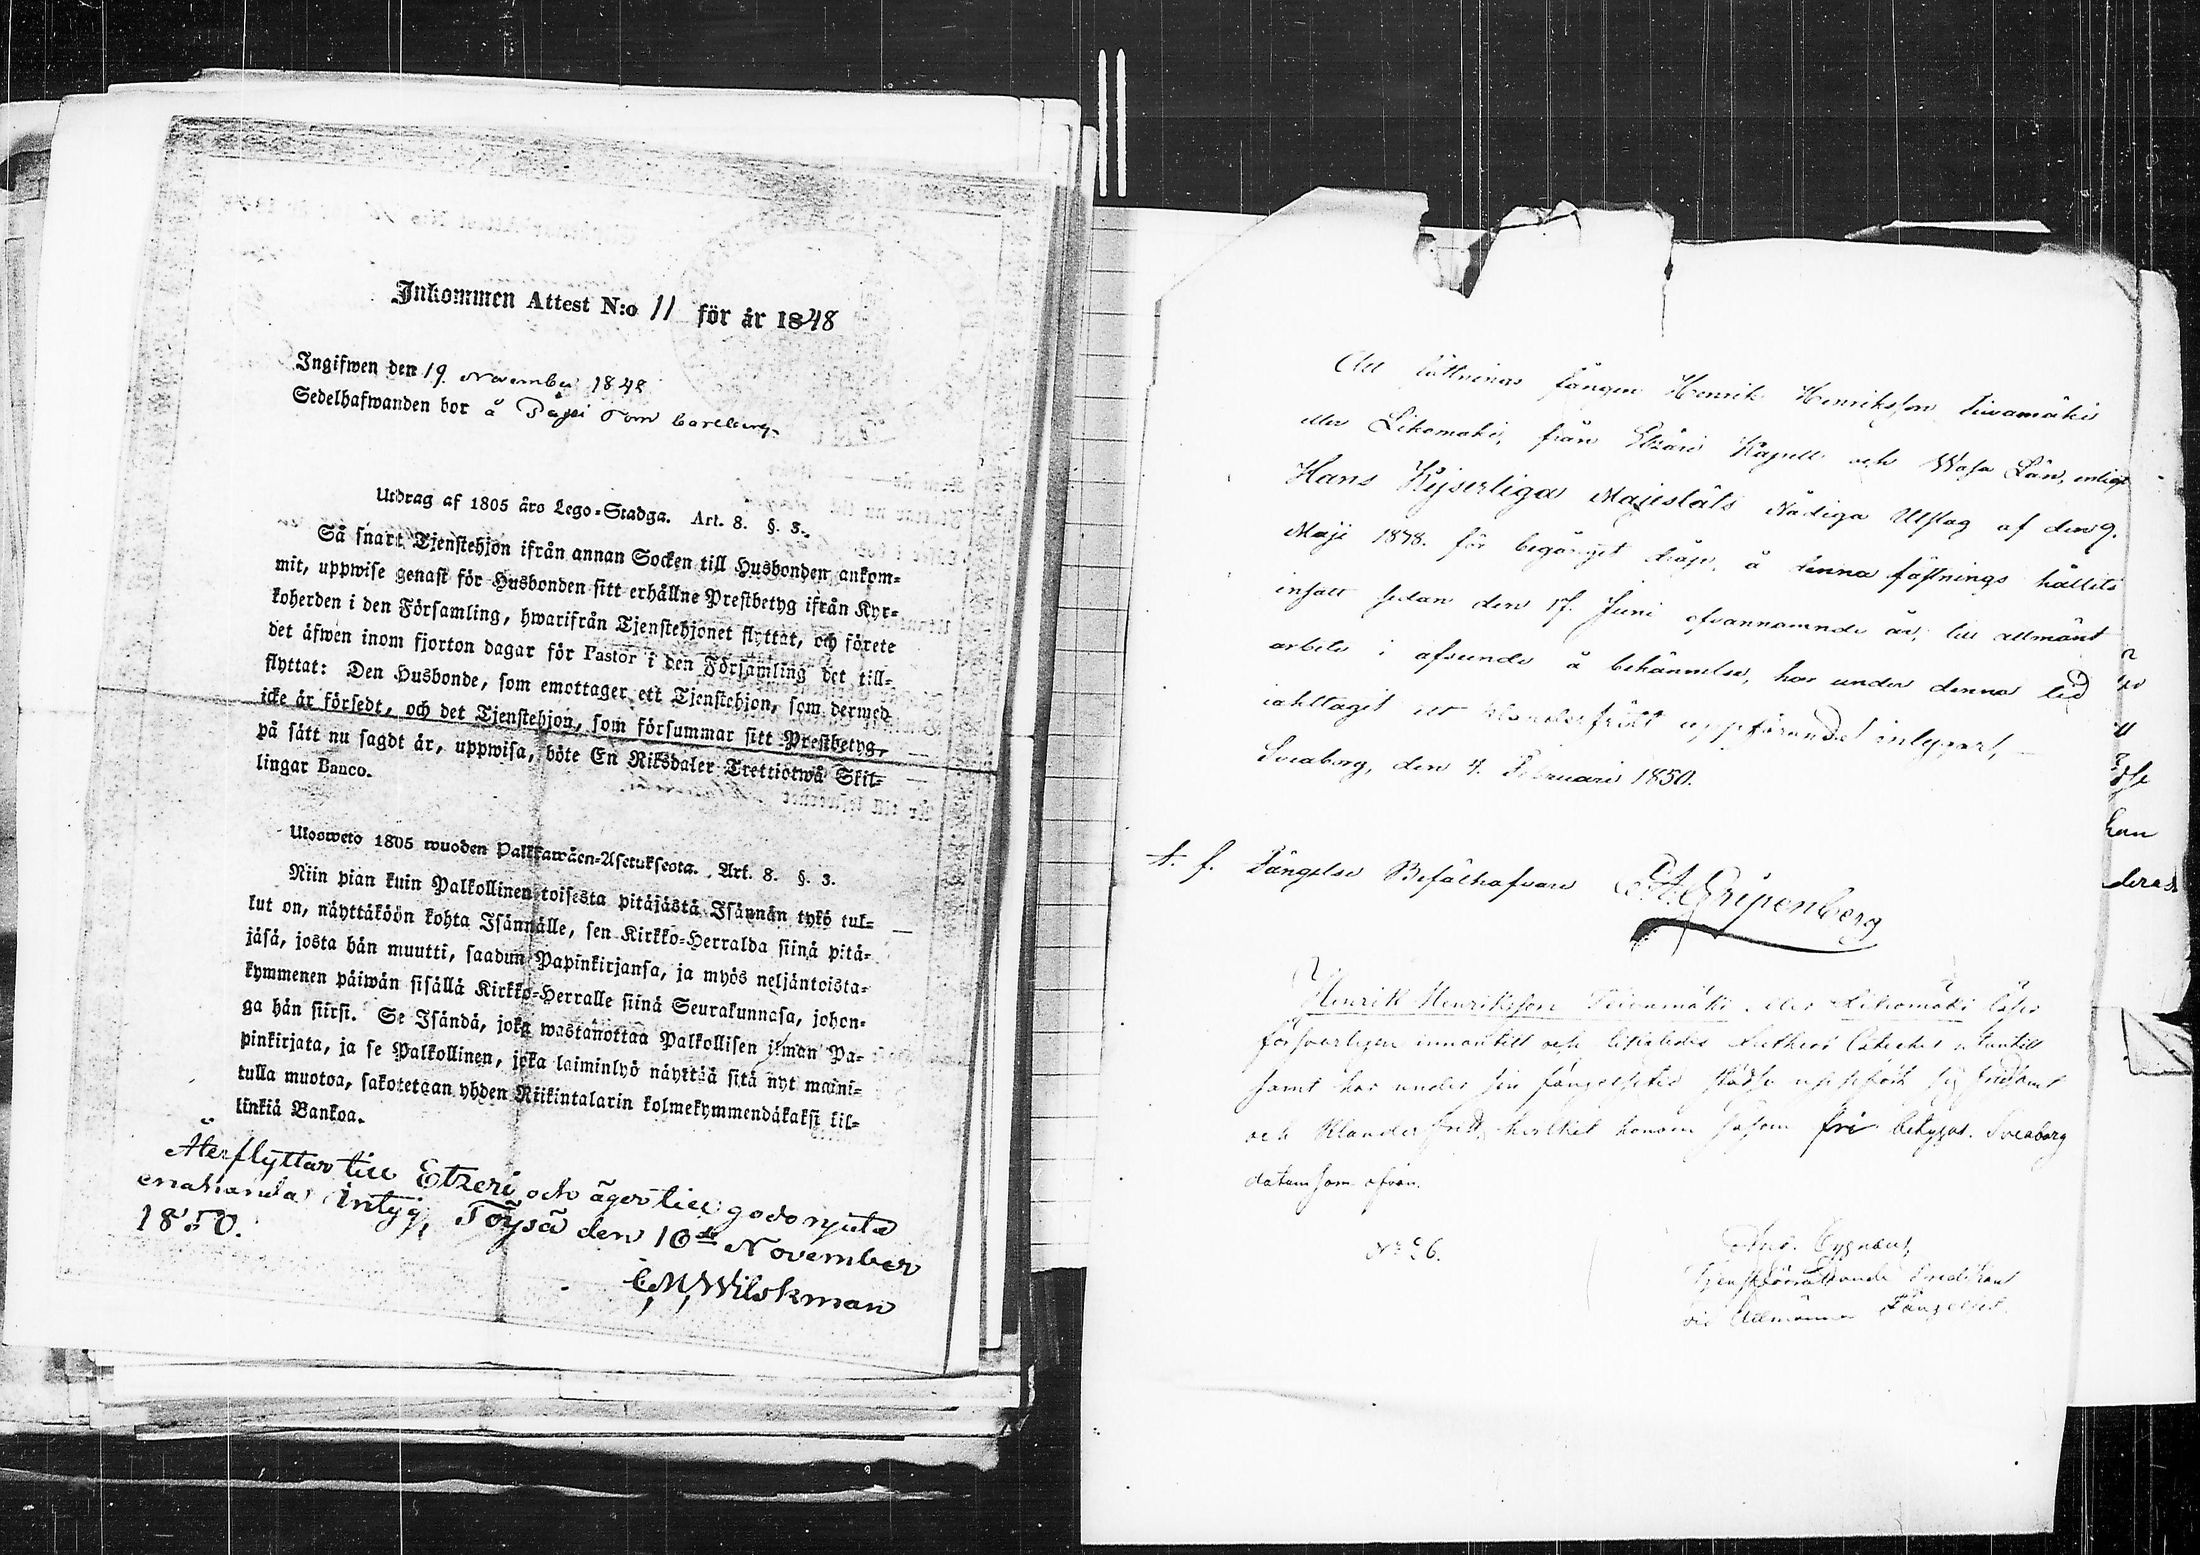 Inkommen Attest N:o 11 för år 1848
Ingifwen den 19. November 1848
Sedelhafwanden bor å
Utdrag af 1805 års Lego-Stadga. Art. 8. §. 3.
Så snart Tjenstehjon ifrån annan Socken till Husbonden ankom-
mit, uppwise genast för Husbonden sitt erhållne Prestbetyg ifrån Kyr-
koherden i den Församling, hwarifrån Tjenstehjonet flyttat, och förete
det äfwen inom fjorton dagar för Pastor i den Församling det till-
flyttat: Den Husbonde, som emottager ett Tjenstehjon, som dermed
icke är försedt, och det Tjenstehjon, som försummar sitt Prestbetyg,
på sätt nu sagdt är, uppwisa, böte En Riksdaler Trettiotwå Skil-
lingar Banco.
Ulosweto 1805 wuoden Palkkawäen-Asetuksesta. Art. 8. §. 3.
Niin pian kuin Palkollinen toisesta pitäjästä Isännän tykö tul-
kut on, näyttäköön kohta Isännälle, sen Kirkko-Herralda siinä pitä-
jäsä, josta hän muutti, saadun Papinkirjansa, ja myös neljäntoista-
kymmenen päiwän sisällä Kirkko-Herralle siinä Seurakunnasa, johon-
ga hän siirsi. Se Isändä, joka wastanottaa Palkollisen ilman Pa-
pinkirjata, ja se Palkollinen, joka laiminlyö näyttää sitä nyt maini-
tulla muotoa, sakotetaan yhden Riikintalarin kolmekymmendäkaksi kil-
linkiä Bankoa.
Återflyttar till Etzeri och äger till godo njuta
enahanda intyg, Töysä den 10de November
1850.
C. M. Wilskman
Att fästnings fången Henrik Henriksson
eller Likomäki, från Etzäri Kapell och Wasa Län, enligt
Hans Kejserliga Majestäts Nådiga Utslag af den 9.
Maji 1848. för begånget dråp, å denna fästnings
insatt sedan den 17. Juni ofvannämnde år, till allmänt
arbete i afseende å bekännelse, har under denna tid
iakttagit ett klanderfritt uppförande
Sveaborg, den 4. Februari 1850.
t. f. Fängelse Befälhafvare Gripenberg
Henrik Henriksson eller Likomäki läser
försvarligen innantill och Lutheri Cateches utantill
samt har under sin fängelsetid städse uppfört sig
och klanderfritt, hvilket honom såsom fri betygas. Sveaborg
datum som ofvan.
And. Cygnæus,
Tjenstförrättande Predikant
vid Allmänna Fängelset.